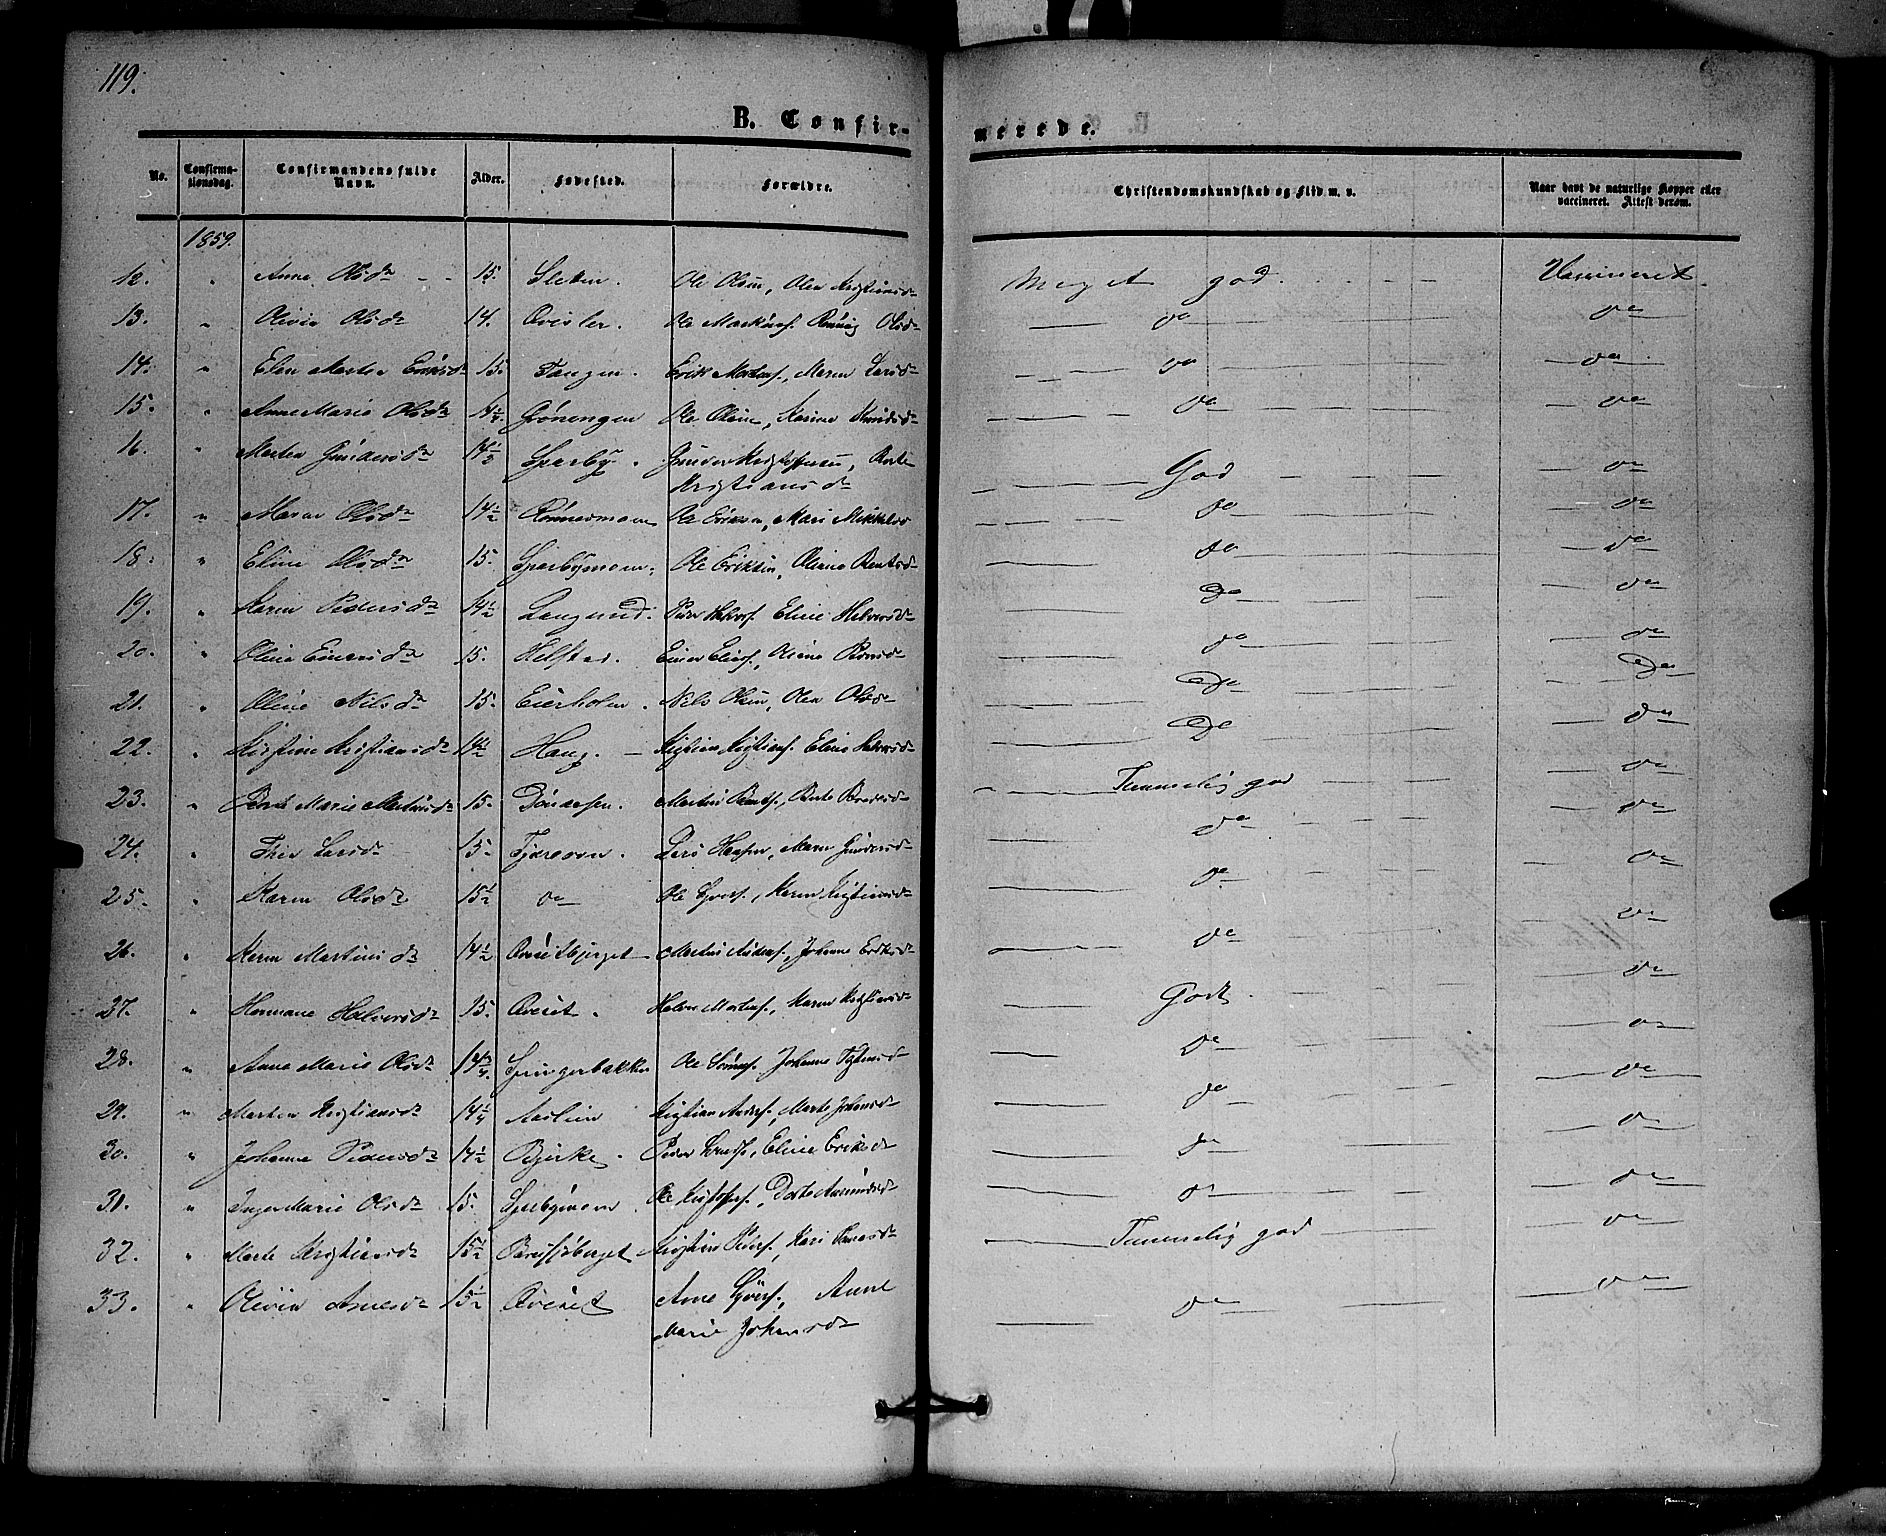 119.
B. Confir-
merede.
No. Confirma-tionsdag. Confirmandens fulde Navn. Alder. Fødested. Forældre. Christendomskundskab og Flid m. v. Naar havt de naturlige Kopper eller vaccineret. Attest derom.
1859.
12. " Anne Olsdr 15. Sletten. Ole Olsen, Olea Kristiansdr Meget god. Vaccineret.
13. " Olivia Olsdr 14. Qvisler. Ole Markusf. Rønnig Olsdr do do
14. " Elen Martea Eriksdr 15. Tangen. Erik Mortensf., Maren Larsdr do do
15. " Anne Marie Olsdr 14 1/4 Grønengen Ole Olsen, Karine Knudsdr do do
16. " Martea Gundersdr 14 1/2 Sparby. Gunder Kristoffersen, Berte
Kristiansdr God do
17. " Maren Olsdr 14 1/2 Ole Eriksen, Mari Mikkelsd do do
18. " Eline Olsdr 15. Sparbymoen. Ole Eriksen, Oliane Berntsdr do do
19. " Karen Pedersdr 14 1/2 Langsund. Peder Halvorsf. Eline Halvorsdr Do do
20. " Oline Einersdr 15. Helstad. Einer Eliasf., Oliana Pedersdr do do
21. " Oline Nilsdr 15. Eierholen. Nils Olsen, Olea Olsdr Do Do
22. " Kristine Kristiansdr 14 1/2 Haug. Kristian Kristiansf. Elena Halvorsdr Do do
23. " Berte Marie Martinsdr 15. Martin Berntsf., Berte Temmelig god do
24. " Larsdr 15. Lars Hansen, Maren Gundersdr do do
25. " Karen Olsdr 15 1/2 do Ole Syversf., Karen Kristiansdr do do
26. " Karen Martinsdr 14 1/2 Qveietbjerget Martin Andersf., Johanne Eriksdr do do
27. " Hermane Halvorsdr 15. Qveiet. Halvor Mortensf., Karen Kristiansdr Godt. do
28. " Anne Marie Olsdr 14 3/4. Springerbakken Ole Johanne do do
29. " Martea Kristiansdr 14 1/4 Aaslien Kristian Andersf., Marte Johansdr do do
30. " Johanne Pedersdr 14 1/2 Bjerke. Peder Eline Eriksdr do do
31. " Inger Marie Olsdr 15. Sparbymoen. Ole Kristoffersf., Dorte Amundsdr do do
32. " Marte Kristiansdr 15 1/2 Kristian Pedersf., Kari Temmelig god do
33. " Olivia Arnesdr 15 1/2 Qveiet Arne Syversf., Anne
Marie Johansdr do do